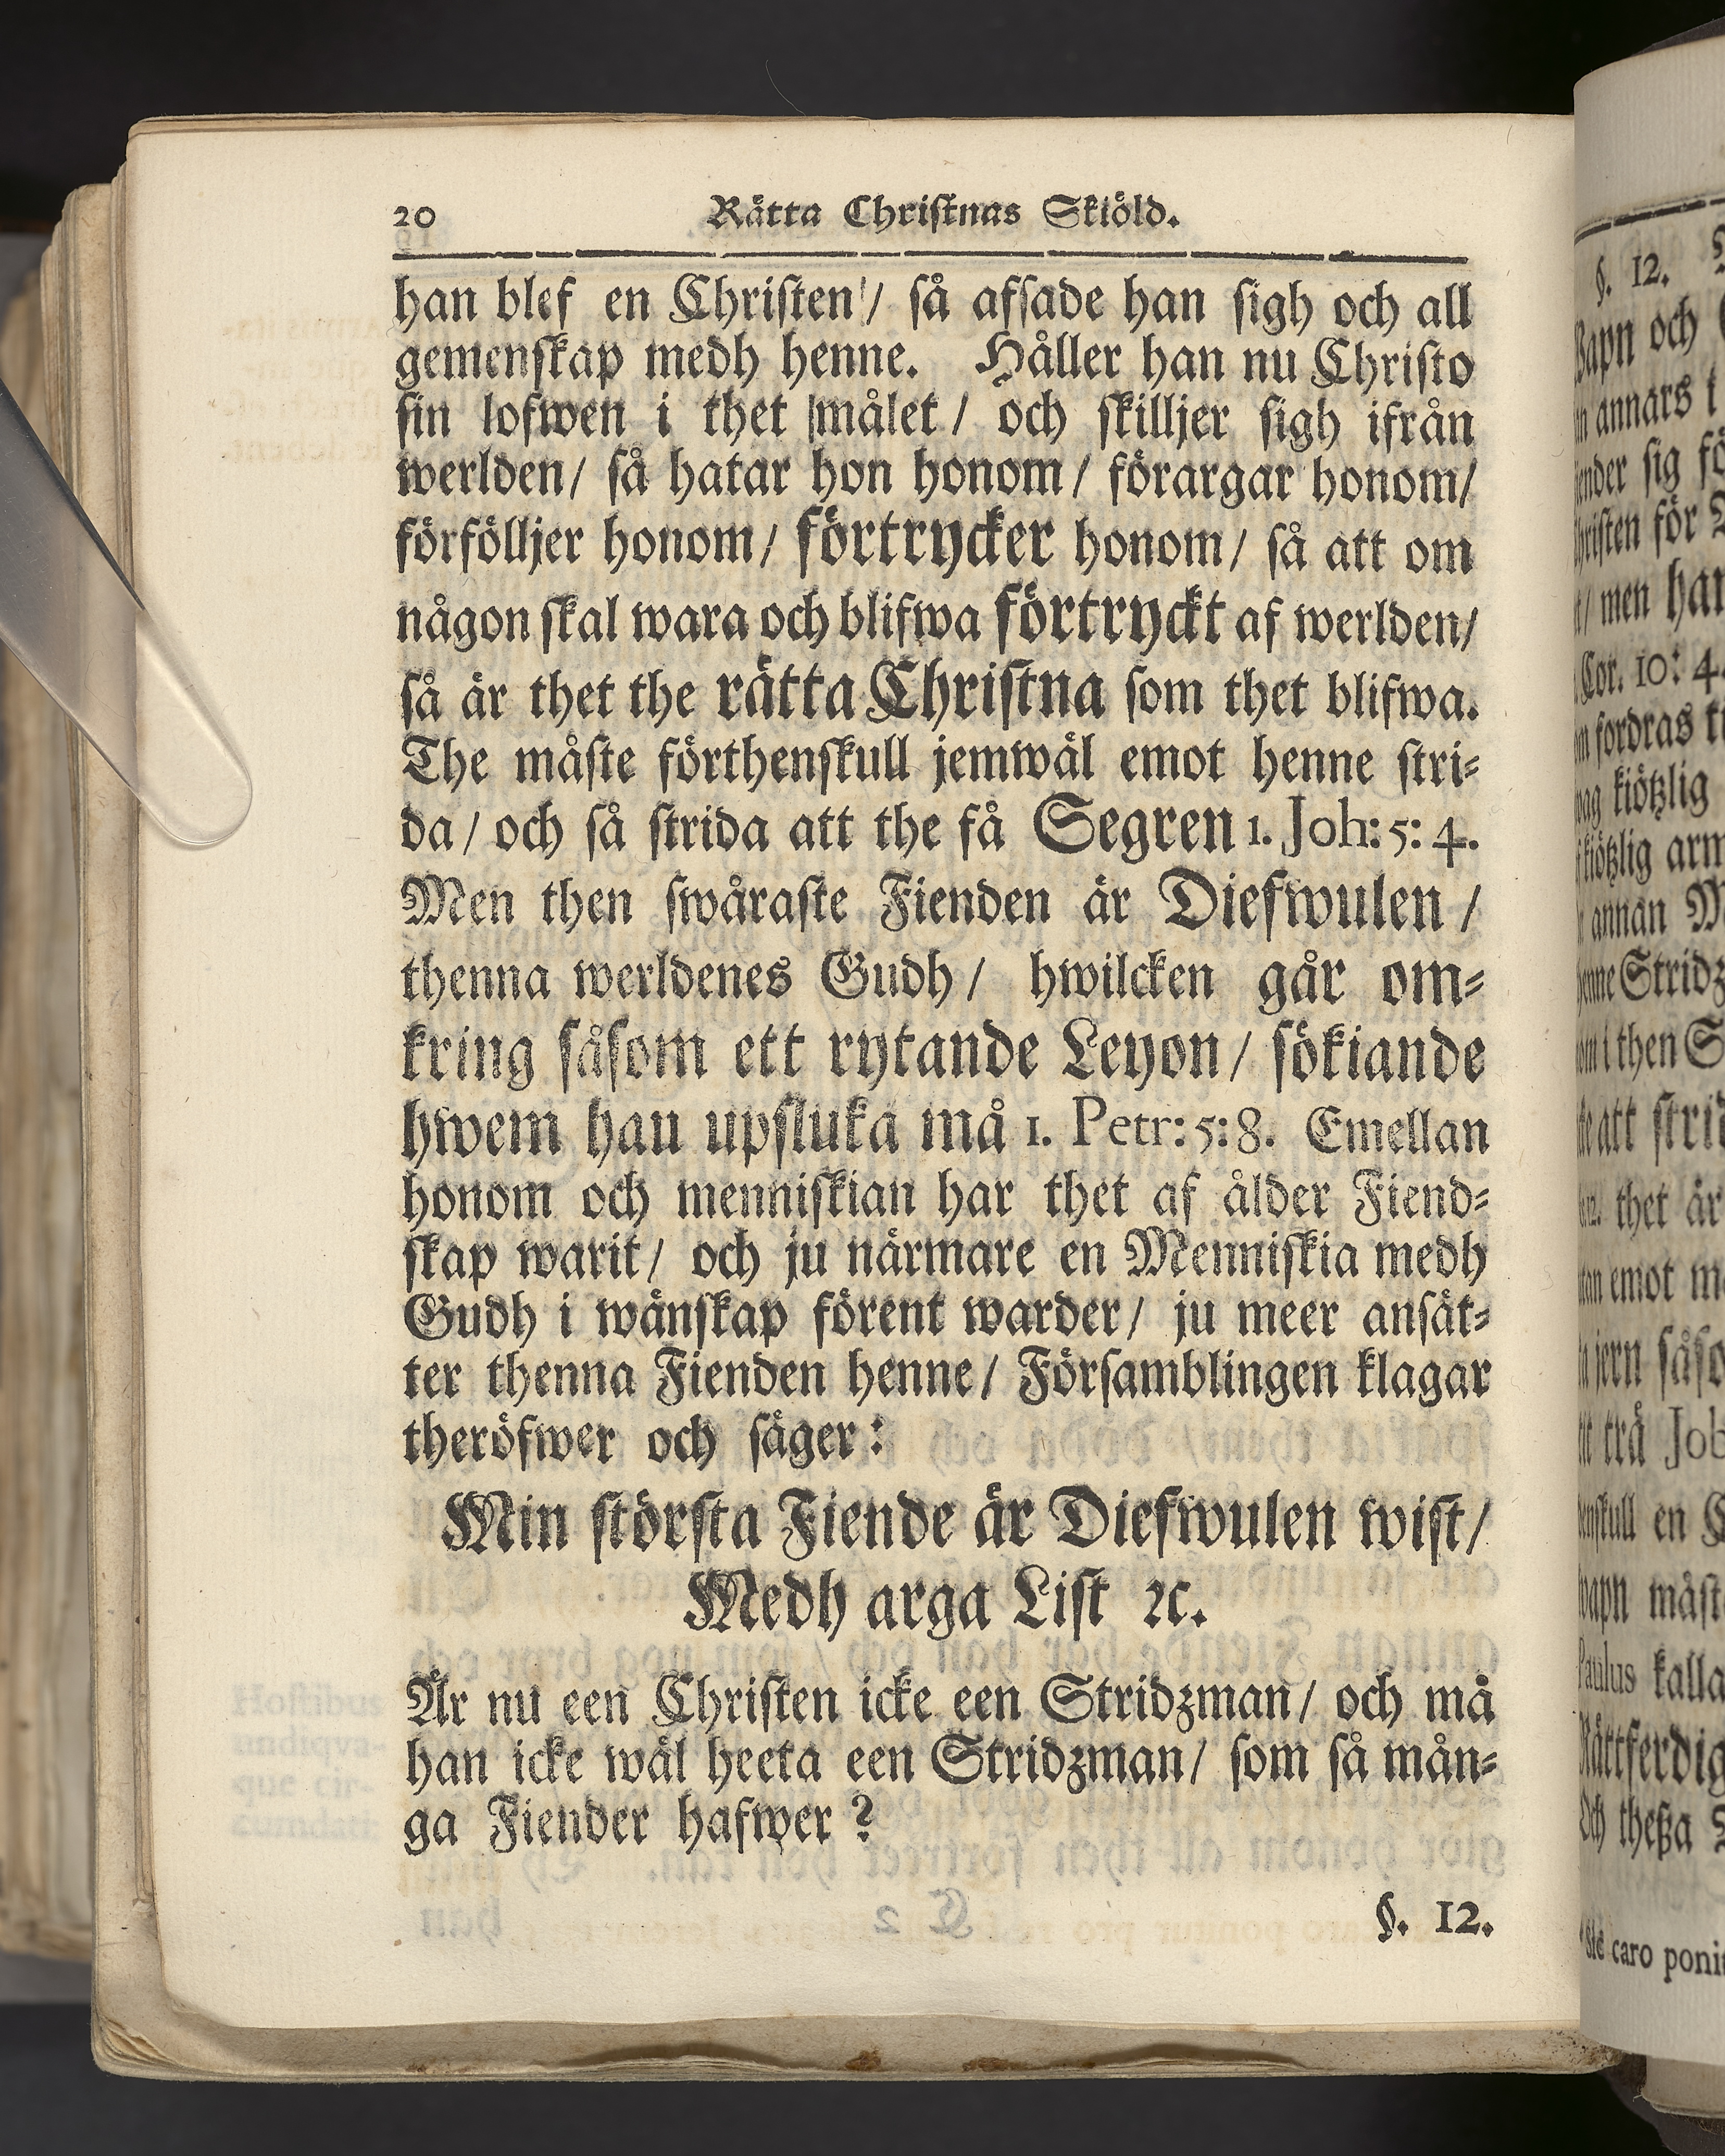 20 Rätta Christnas Skiöld.
han blef en Christen / så afsade han sigh och all
gemenskap medh henne. Håller han nu Christo
sin lofwen i thet målet / och skilljer sigh ifrån
werlden / så hatar hon honom / förargar honom /
förfölljer honom / förtrycker honom / så att om
någon skal wara och blifwa förtryckt af werlden /
så är thet the rätta Christna som thet blifwa.
The måste förthenskull jemwäl emot henne stri-
da / och så strida att the få Segren 1. Joh: 5: 4.
Men then swåraste Fienden är Diefwulen /
thenna werldenes Gudh / hwilcken går om-
kring såsom ett rytande Leyon / sökiande
hwem hau upsluka må 1. Petr: 5: 8. Emellan
honom och menniskian har thet af ålder Fiend-
skap warit / och ju närmare en Menniskia medh
Gudh i wänskap förent warder / ju meer ansät-
ter thenna Fienden henne / Församblingen klagar
theröfwer och säger:
Min största Fiende är Diefwulen wist /
Medh arga List ꝛc.
Är nu een Christen icke een Stridzman / och må
han icke wäl heeta een Stridzman / som så mån-
ga Fiender hafwer?
§. 12.
§. 12.
och
annars
sig
för
men
10: 4
fordras
kiötzlig
annan
Stridz
then
att
thet är
emot
trä
en
måst
Paulus kalla
theßa
caro